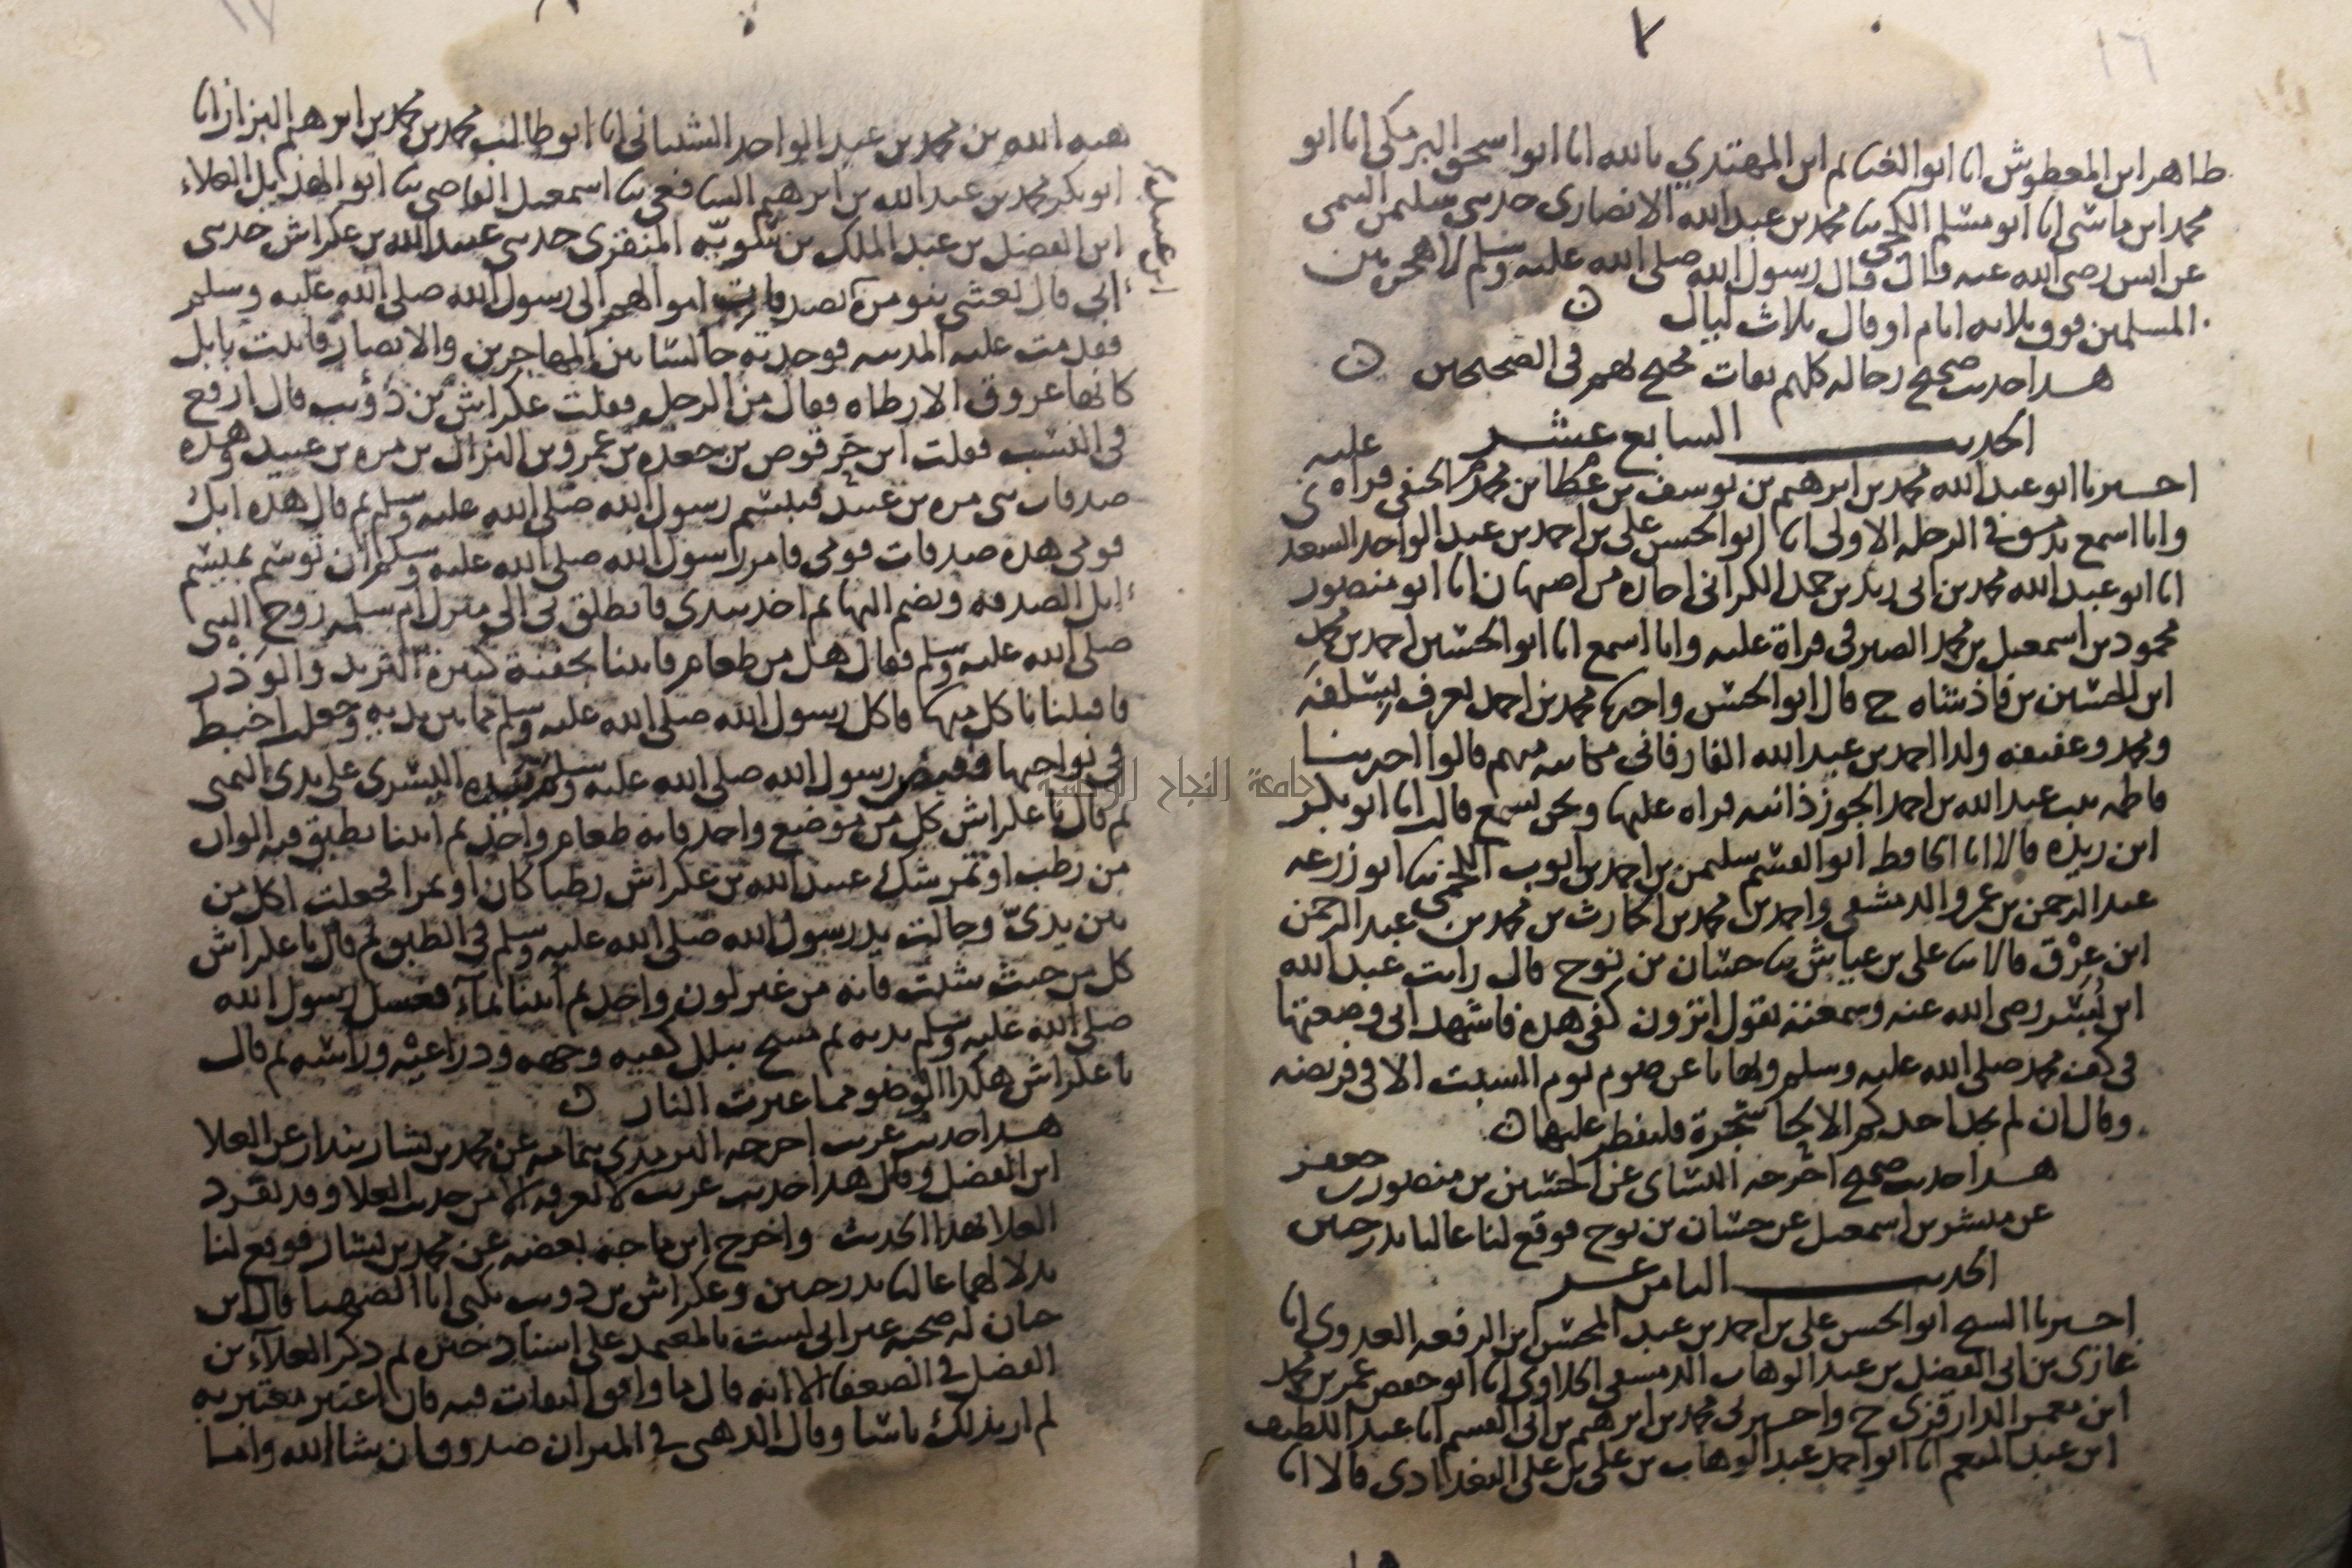 طاهر ابن المعطوش انا ابو الغنايم ابن المهتدي بالله انا ابو اسحق البرمكي انا ابو
محمد ابن ماسي انا ابو مسلم الكجي ثنا محمد بن عبد الله الانصاري حدثني سليمن التيمي
عن انس رضي الله عنه قال قال رسول الله صلى الله عليه وسلم لا هجرة بين
المسلمين فوق ثلاثة ايام او قال ثلاث ليال
هذا حديث صحيح رجاله كلهم ثقات محتج بهم في الصحيحين
الحديث السابع عشر
اخبرنا ابو عبد الله محمد بن ابرهيم بن يوسف بن عطا بن محمد الحنفي قراة عليه
وانا اسمع بدمشق في الرحلة الاولى انا ابو الحسن علي بن احمد بن عبد الواحد السعدي
انا ابو عبد الله محمد بن ابي زيد بن حمد الكراني اجازة من اصبهان انا ابو منصور
محمود بن اسمعيل بن محمد الصيرفي قراة عليه وانا اسمع انا ابو الحسين احمد بن محمد
ابن الحسين بن فاذشاه ح قال ابو الحسن واخبرنا محمد بن احمد يعرف بسلفه
ومحمد وعفيفة ولدا احمد بن عبد الله الفارفاني مكاتبة منهم قالوا اخبرتنا
فاطمة بنت عبد الله بن احمد الجوزذانية قراة عليها ونحن نسمع قالت انا ابو بكر
ابن ريذه قالا انا الحافظ ابو القسم سليمن بن احمد بن ايوب اللخمي ثنا ابو زرعة
عبد الرحمن بن عمرو الدمشقي واحمد بن محمد بن الحارث بن محمد بن عبد الرحمن
ابن عرق قالا ثنا علي بن عياش ثنا حسان بن نوح قال رايت عبد الله
ابن بسر رضي الله عنه وسمعته يقول اترون كفي هذه فاشهد اني وضعتها
في كف محمد صلى الله عليه وسلم ونهانا عن صوم يوم السبت الا في فريضة
وقال ان لم يجد احدكم الا لحا شجرة فليفطر عليها
هذا حديث صحيح اخرجه النساي عن الحسين بن منصور بن جعفر
عن مبشر بن اسمعيل عن حسان بن نوح فوقع لنا عاليا بدرجتين
الحديث الثامن عشر
اخبرنا الشيخ ابو الحسن علي بن احمد بن عبد المحسن ابن الرفعة العدوي انا
غازي بن ابي الفضل بن عبد الوهاب الدمشقي الحلاوي انا ابو حفص عمر بن محمد
ابن معمر الدارقزي ح واخبرني محمد بن ابرهيم بن ابي القسم انا عبد اللطيف
ابن عبد المنعم انا ابو احمد عبد الوهاب بن علي بن علي البغدادي قالا انا
هبة الله بن محمد بن عبد الواحد الشيباني انا ابو طالب محمد بن محمد بن ابرهيم البزاز انا
ابو بكر محمد بن عبد الله بن ابرهيم الشافعي ثنا اسمعيل القاضي ثنا ابو الهذيل العلاء
ابن الفضل بن عبد الملك بن سويه المنقري حدثني عبيد الله بن عكراش حدثني
ابي قال بعثني بنو مرة بصدقات اموالهم الى رسول الله صلى الله عليه وسلم
فقدمت عليه المدينة فوجدته جالسا بين المهاجرين والانصار فاتيت بابل
كانها عروق الارطاه فقال من الرجل فقلت عكراش بن ذؤيب قال ارفع
في النسب فقلت ابن حرقوص بن جعده بن عمرو بن النزال بن مره بن عبيد وهذه
صدقات بني مره بن عبيد فتبسم رسول الله صلى الله عليه وسلم ثم قال هذه ابل
قومي هذه صدقات قومي فامر رسول الله صلى الله عليه وسلم ان توسم بميسم
ابل الصدقة وتضم اليها ثم اخذ بيدي فانطلق بي الى منزل ام سلمه زوج النبي
صلى الله عليه وسلم فقال هل من طعام فاتينا بجفنة كثيرة الثريد والوذر
فاقبلنا ناكل منها فاكل رسول الله صلى الله عليه وسلم مما بين يديه وجعلت اخبط
في نواحيها فقبض رسول الله صلى الله عليه وسلم بيده اليسرى على يدي اليمنى
ثم قال يا عكراش كل من موضع واحد فانه طعام واحد ثم اتينا بطبق فيه الوان
من رطب او تمر شك عبيد الله بن عكراش رطبا كان او تمرا فجعلت اكل من
بين يديّ وجالت يد رسول الله صلى الله عليه وسلم في الطبق ثم قال يا عكراش
كل من حيث شئت فانه من غير لون واحد ثم اتينا بماء فغسل رسول الله
صلى الله عليه وسلم يديه ثم مسح ببلل كفيه وجهه وذراعيه وراسه ثم قال
يا عكراش هكذا الوضو مما غيرت النار
هذا حديث غريب اخرجه الترمذي بتمامه عن محمد بن بشار بندار عن العلا
ابن الفضل وقال هذا حديث غريب لا نعرفه الا من حديث العلا وقد تفرد
العلا بهذا الحديث واخرج ابن ماجه بعضه عن محمد بن بشار فوقع لنا
بدلا لهما عاليا بدرجتين وعكراش بن ذويب يكنى ابا الصهبا قال ابن
حبان له صحبه غير اني لست بالمعتمد على اسناد خبره ثم ذكر العلاء بن
الفضل في الضعفا الا انه قال ما وافق الثقات فيه فان اعتبر معتبر به
لم ار بذلك باسا وقال الذهبي في الميزان صدوق ان شا الله واما
جامعة النجاح الوطنية